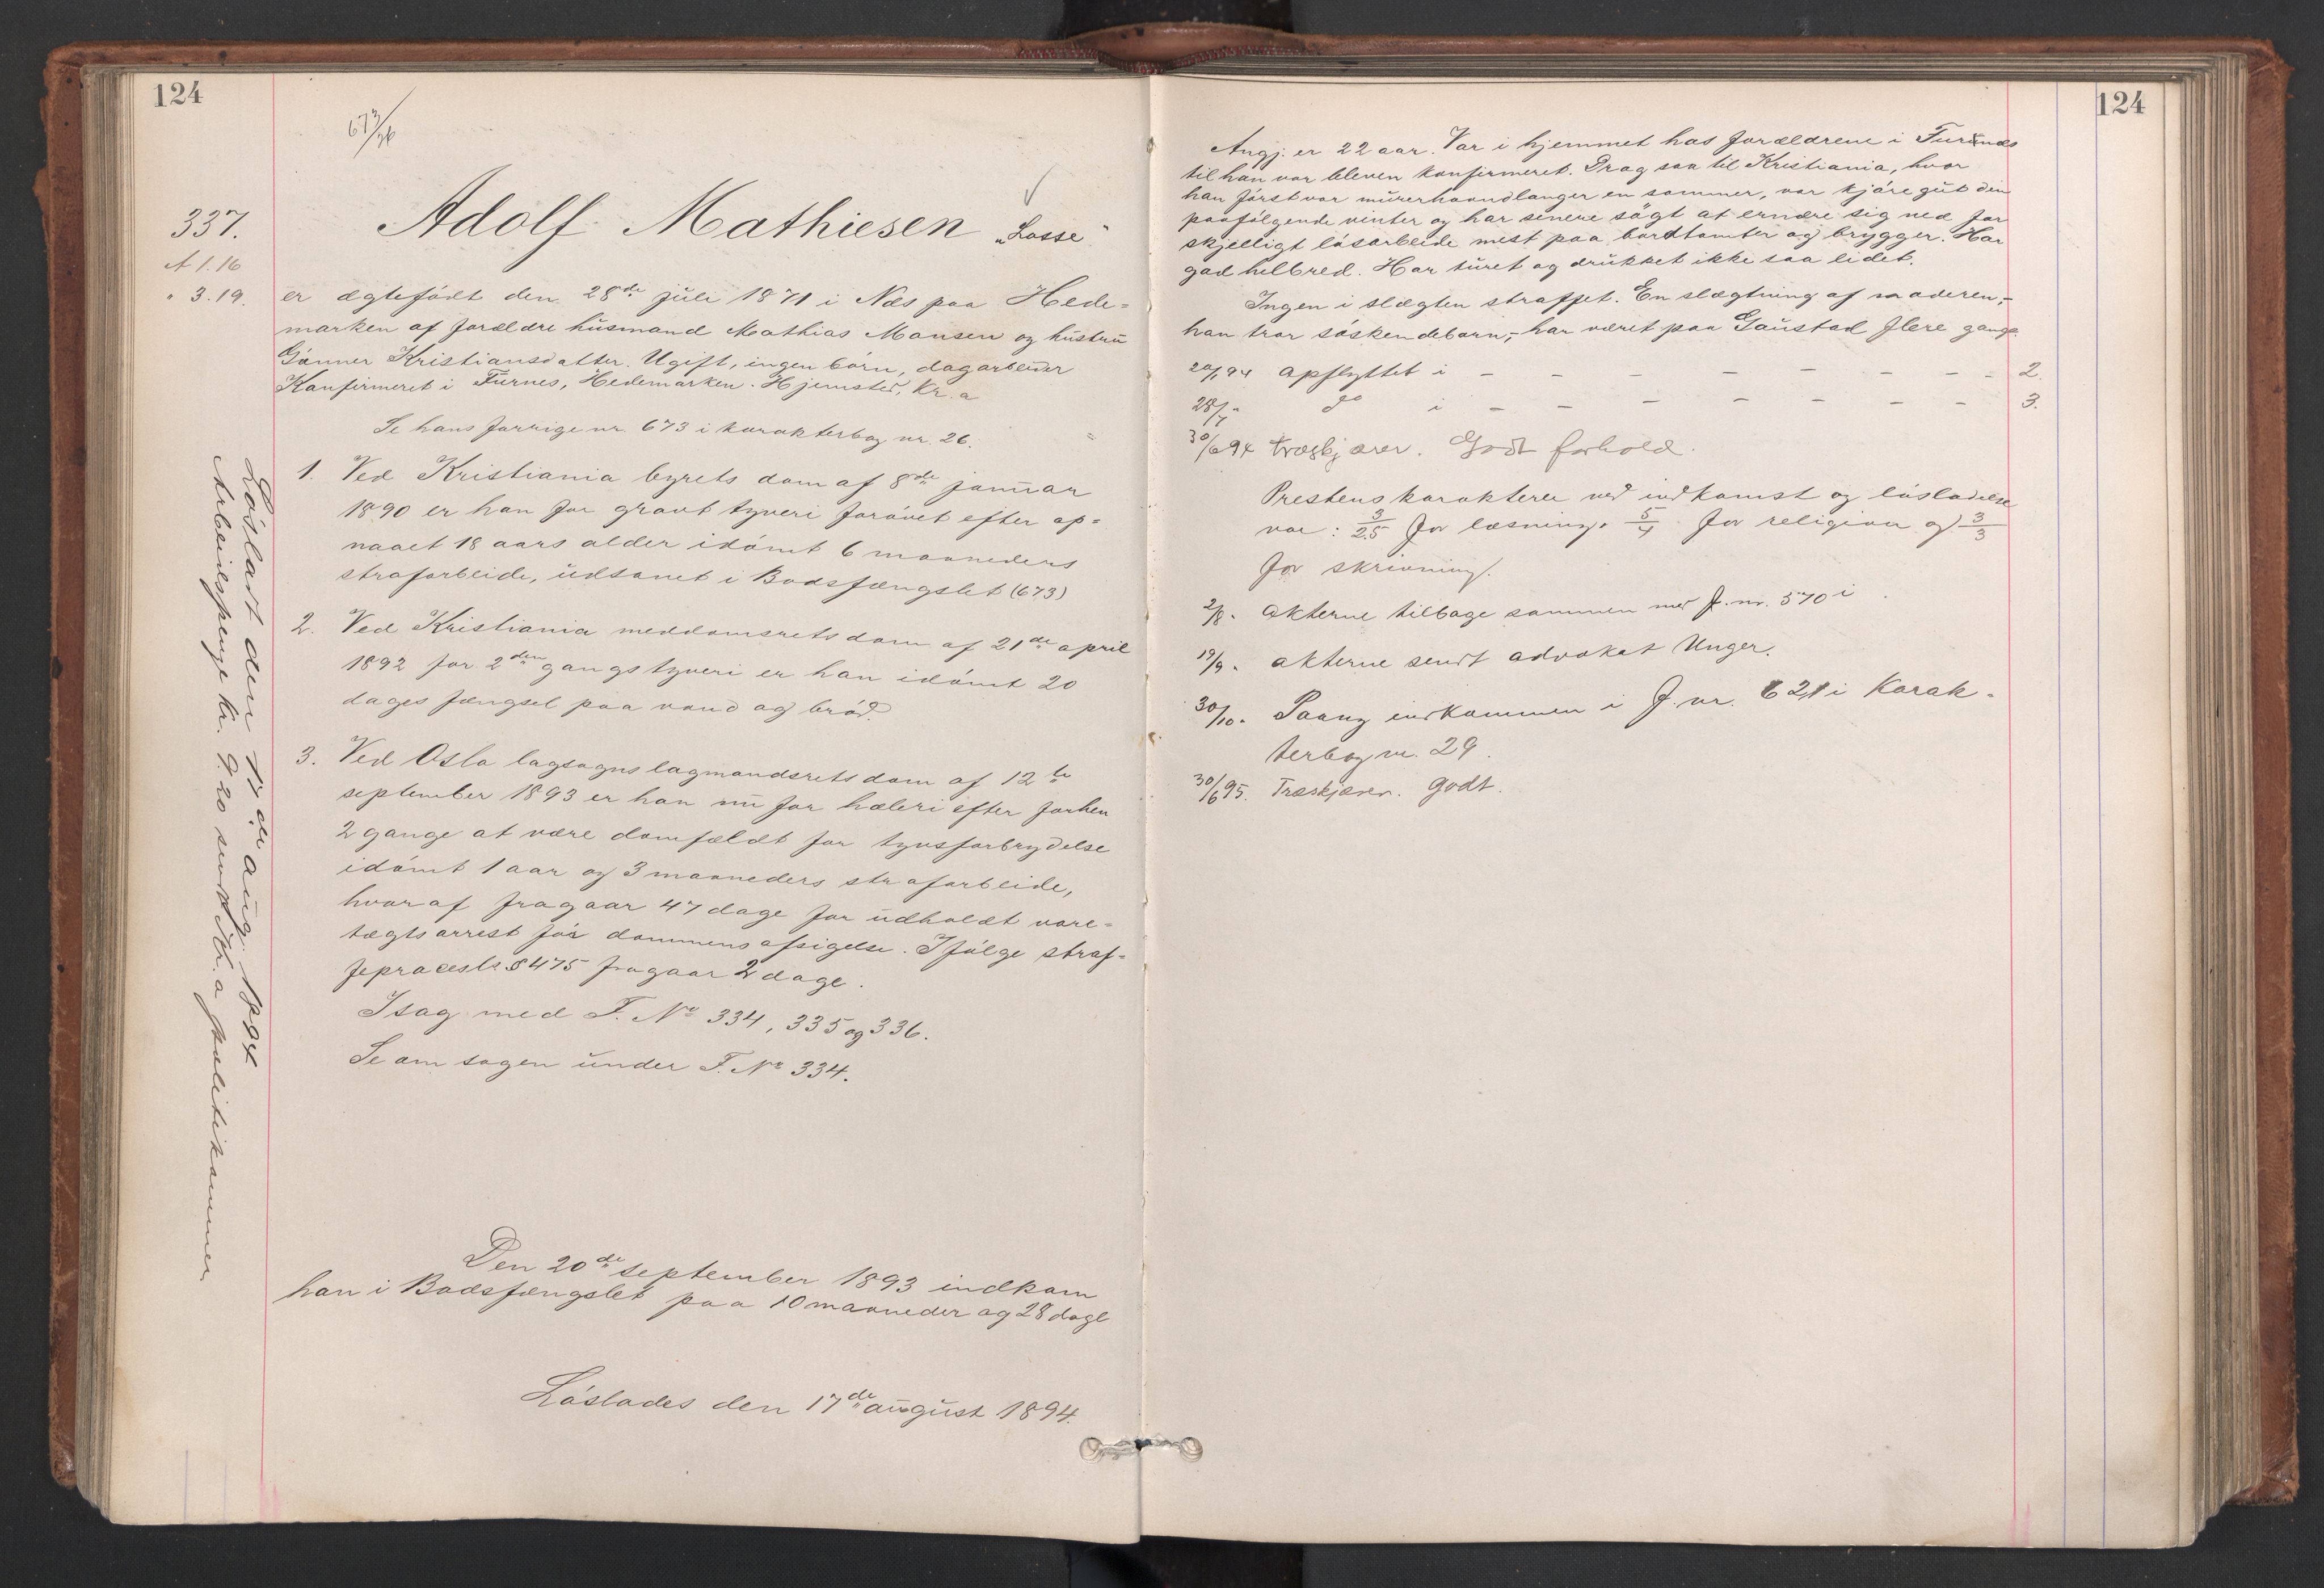 124
673/26
337.
A 1.16
" 3.19.
Adolf Mathiesen „Lasse"
er ægtefödt den 28de juli 1871 i Næs paa Hede=
marken af forældre husmand Mathias Mansen og hustru
Gönner Kristiansdatter. Ugift, ingen börn, dagarbeider
Konfirmeret i Furnes, Hedemarken. Hjemsted, Kr.a
Se hans forrige nr. 673 i karakterbog nr. 26.
1. Ved Kristiania byrets dom af 8de januar
1890 er han for grovt tyveri forövet efter op=
naaet 18 aars alder idömt 6 maaneders
strafarbeide, udsonet i Bodsfængslet (673)
2. Ved Kristiania meddomsrets dom af 21de april
1892 for 2den gangs tyveri er han idömt 20
dages fængsel paa vand og bröd.
3. Ved Oslo lagsogns lagmandsrets dom af 12te
september 1893 er han nu for hæleri efter forhen
2 gange at være domfældt for tyvsforbrydelse
idömt 1 aar og 3 maaneders strafarbeide,
hvoraf fragaar 47 dage for udholdt vare=
tægtsarrest för dommens afsigelse. Ifölge straf=
feprocesls. § 475 fragaar 2 dage.
I sag med F. No 334, 335 og 336.
Se om sagen under F. No 334.
Den 20de september 1893 indkom
han i Bodsfængslet paa 10 maaneder og 28 dage
Löslades den 17de august 1894.
Löslart den 17de aug. 1894
Arbeidspenge kr. 9.20 sendt Kr.a politikammer
124
Angj. er 22 aar. Var i hjemmet hos forældrene i Furnæs
til han var bleven konfirmeret. Drog saa til Kristiania, hvor
han först var murerhaandlanger en sommer, var kjöregut den
paafölgende vinter og har senere sögt at ernære sig ved for
skjelligt lösarbeide mest paa bordtomter og brygger. Har
god helbred. Har turet og drukket ikke saa lidet.
Ingen i slægten straffet. En slægtning af moderen,-
han tror söskendebarn,- har været paa Gaustad flere gange.
20/1 94 opflyttet i - - - - - - - - 2.
28/7 " do i - - - - - - - - 3.
30/6 94 træskjærer. Godt forhold.
Prestens karakterer ved indkomst og lösladelse
var: 3/2.5 for læsning, 5/4 for religion og 3/3
for skrivning.
2/8 " akterne tilbage sammen med F. nr. 570 i
19/9 " akterne sendt advokat Unger.
30/10 " Paany indkommen i F. nr. 621 i Karak-
terbog nr. 29.
30/6 95. Træskjærer. Godt.